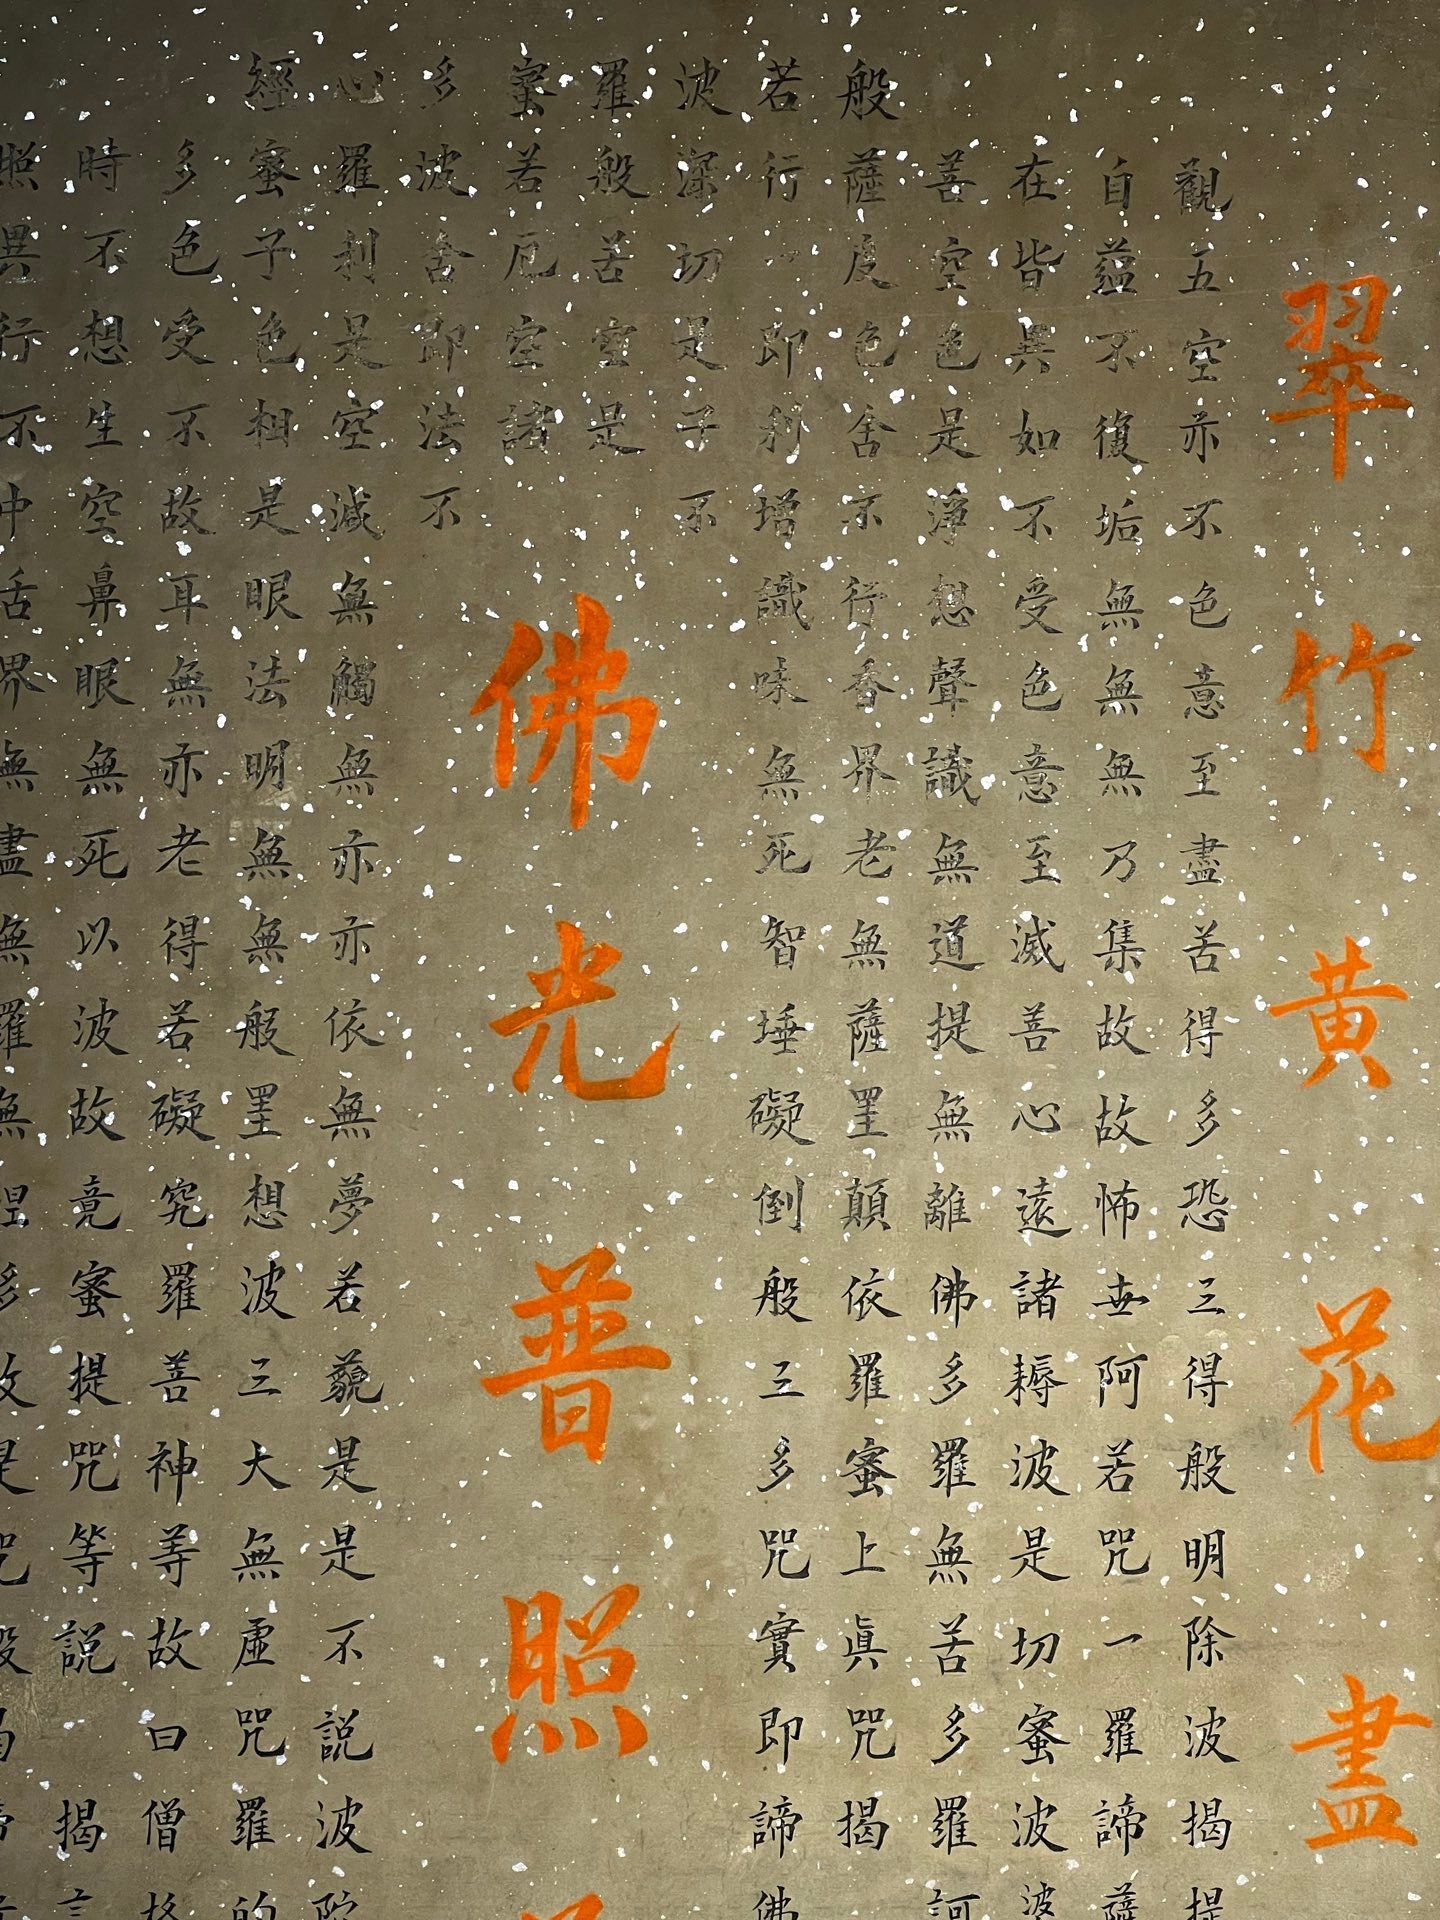 翠竹黄花盡
佛光普照
般若波羅蜜多心經
觀自在菩薩行深般若波羅蜜多時照
五蘊皆空度一切苦厄舍利子色不異
空不異色色即是空空即是色受想行
亦復如是舍利子是諸法空相不生不
不垢不淨不增不
不減是故空中
色無受想行識
無眼耳鼻舌
意無色聲香味
觸法無眼界
至無意識界無
無明亦無無
盡乃至無老死
亦無老死盡
苦集滅道無智
亦無得以無
得故菩提薩埵
依般若波羅
多故心無罣礙
無罣礙故無
恐怖遠離顛倒
夢想究竟涅
三世諸佛依般
若波羅蜜多
得阿耨多羅三
藐三菩提故
般若波羅蜜多
是大神咒是
明咒是無上咒
是無等等咒
除一切苦眞實
不虛故說般
波羅蜜多咒即
說咒曰
揭諦波羅揭諦
波羅僧揭